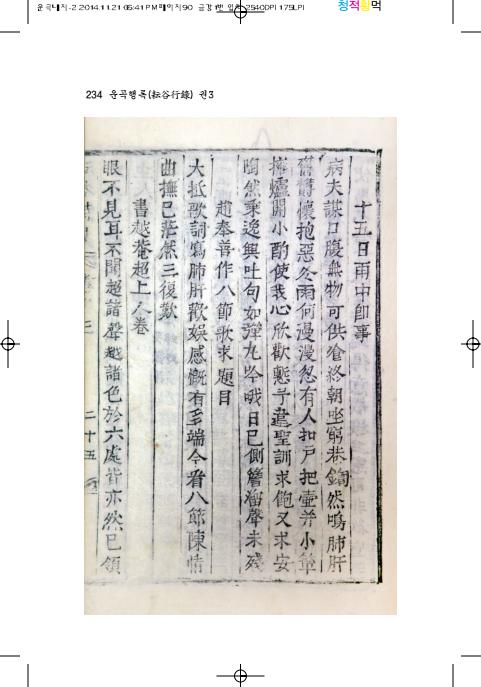 운곡내지-2 2014.11.21 05:41 PM 페이지90
청적황먹
234 운곡행록(耘谷行錄) 권3
十五日雨中卽事
病夫謀口腹無物可供飡終朝坐窮巷鐗然鳴肺肝
欝欝懷抱惡冬雨何漫漫忽有人扣戶把壷幷小簞
擁爐開小酌使我心欣歡慙予違聖訓求飽又求安
陶然乘逸興吐句如彈丸吟哦日已側簷溜聲未殘
趙奉善作八節歌求題目
大抵歌詞寫肺肝歡娛感慨有多端今看八節陳情
曲撫己茫然三復歎
書越菴超上人卷
眼不見耳不聞超諸聲越諸色於六處皆亦然已領
二十五